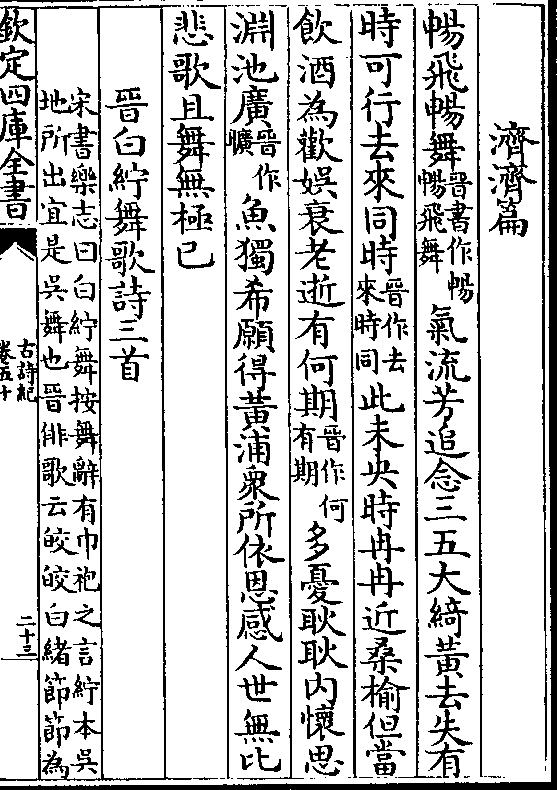 濟濟篇
暢飛暢舞晉書作暢
暢飛舞
氣流芳追念三五大綺黃去失有
時可行去來同時晉作去
來時同
此未央時冉冉近桑榆但當
飲酒為歡娛衰老逝有何期晉作何
有期
多憂耿耿內懷思
淵池廣晉作
曠
魚獨希願得黃浦衆所依恩感人世無比
悲歌且舞無極已
晉白紵舞歌詩三首
宋書樂志曰白紵舞按舞辭有巾袍之言紵本吳
地所出宜是吳舞也晉俳歌云皎皎白緒節節為
欽定四庫全書
古詩紀
卷五十
二十三